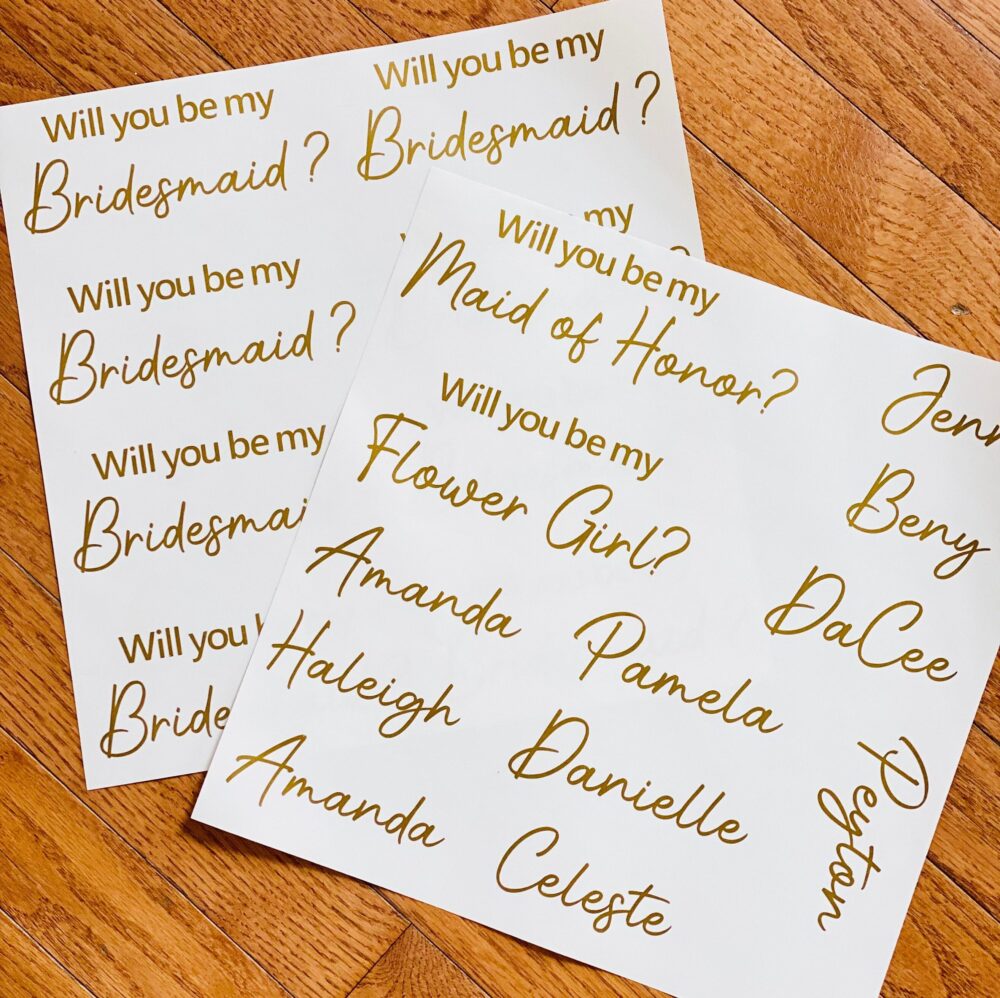 Will you be my
Bridesmaid?
Will you be my
Bridesmaid?
Will you be my
Bridesmaid?
my
?
Will you be my
Bridesmai
Will you
Bride
Will you be my
Maid of Honor?
Will you be my
Flower Girl?
Amanda
Haleigh
Amanda
Pamela
Danielle
Celeste
Jenn
Beny
DaCee
Peyton